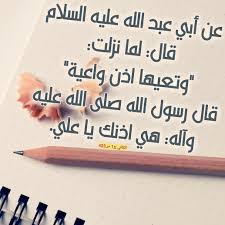 عن أبي عبد الله عليه السلام
قال: لما نزلت:
"وتعيها اذن واعية"
قال رسول الله صلى الله عليه
وآله: هي اذنك يا علي.